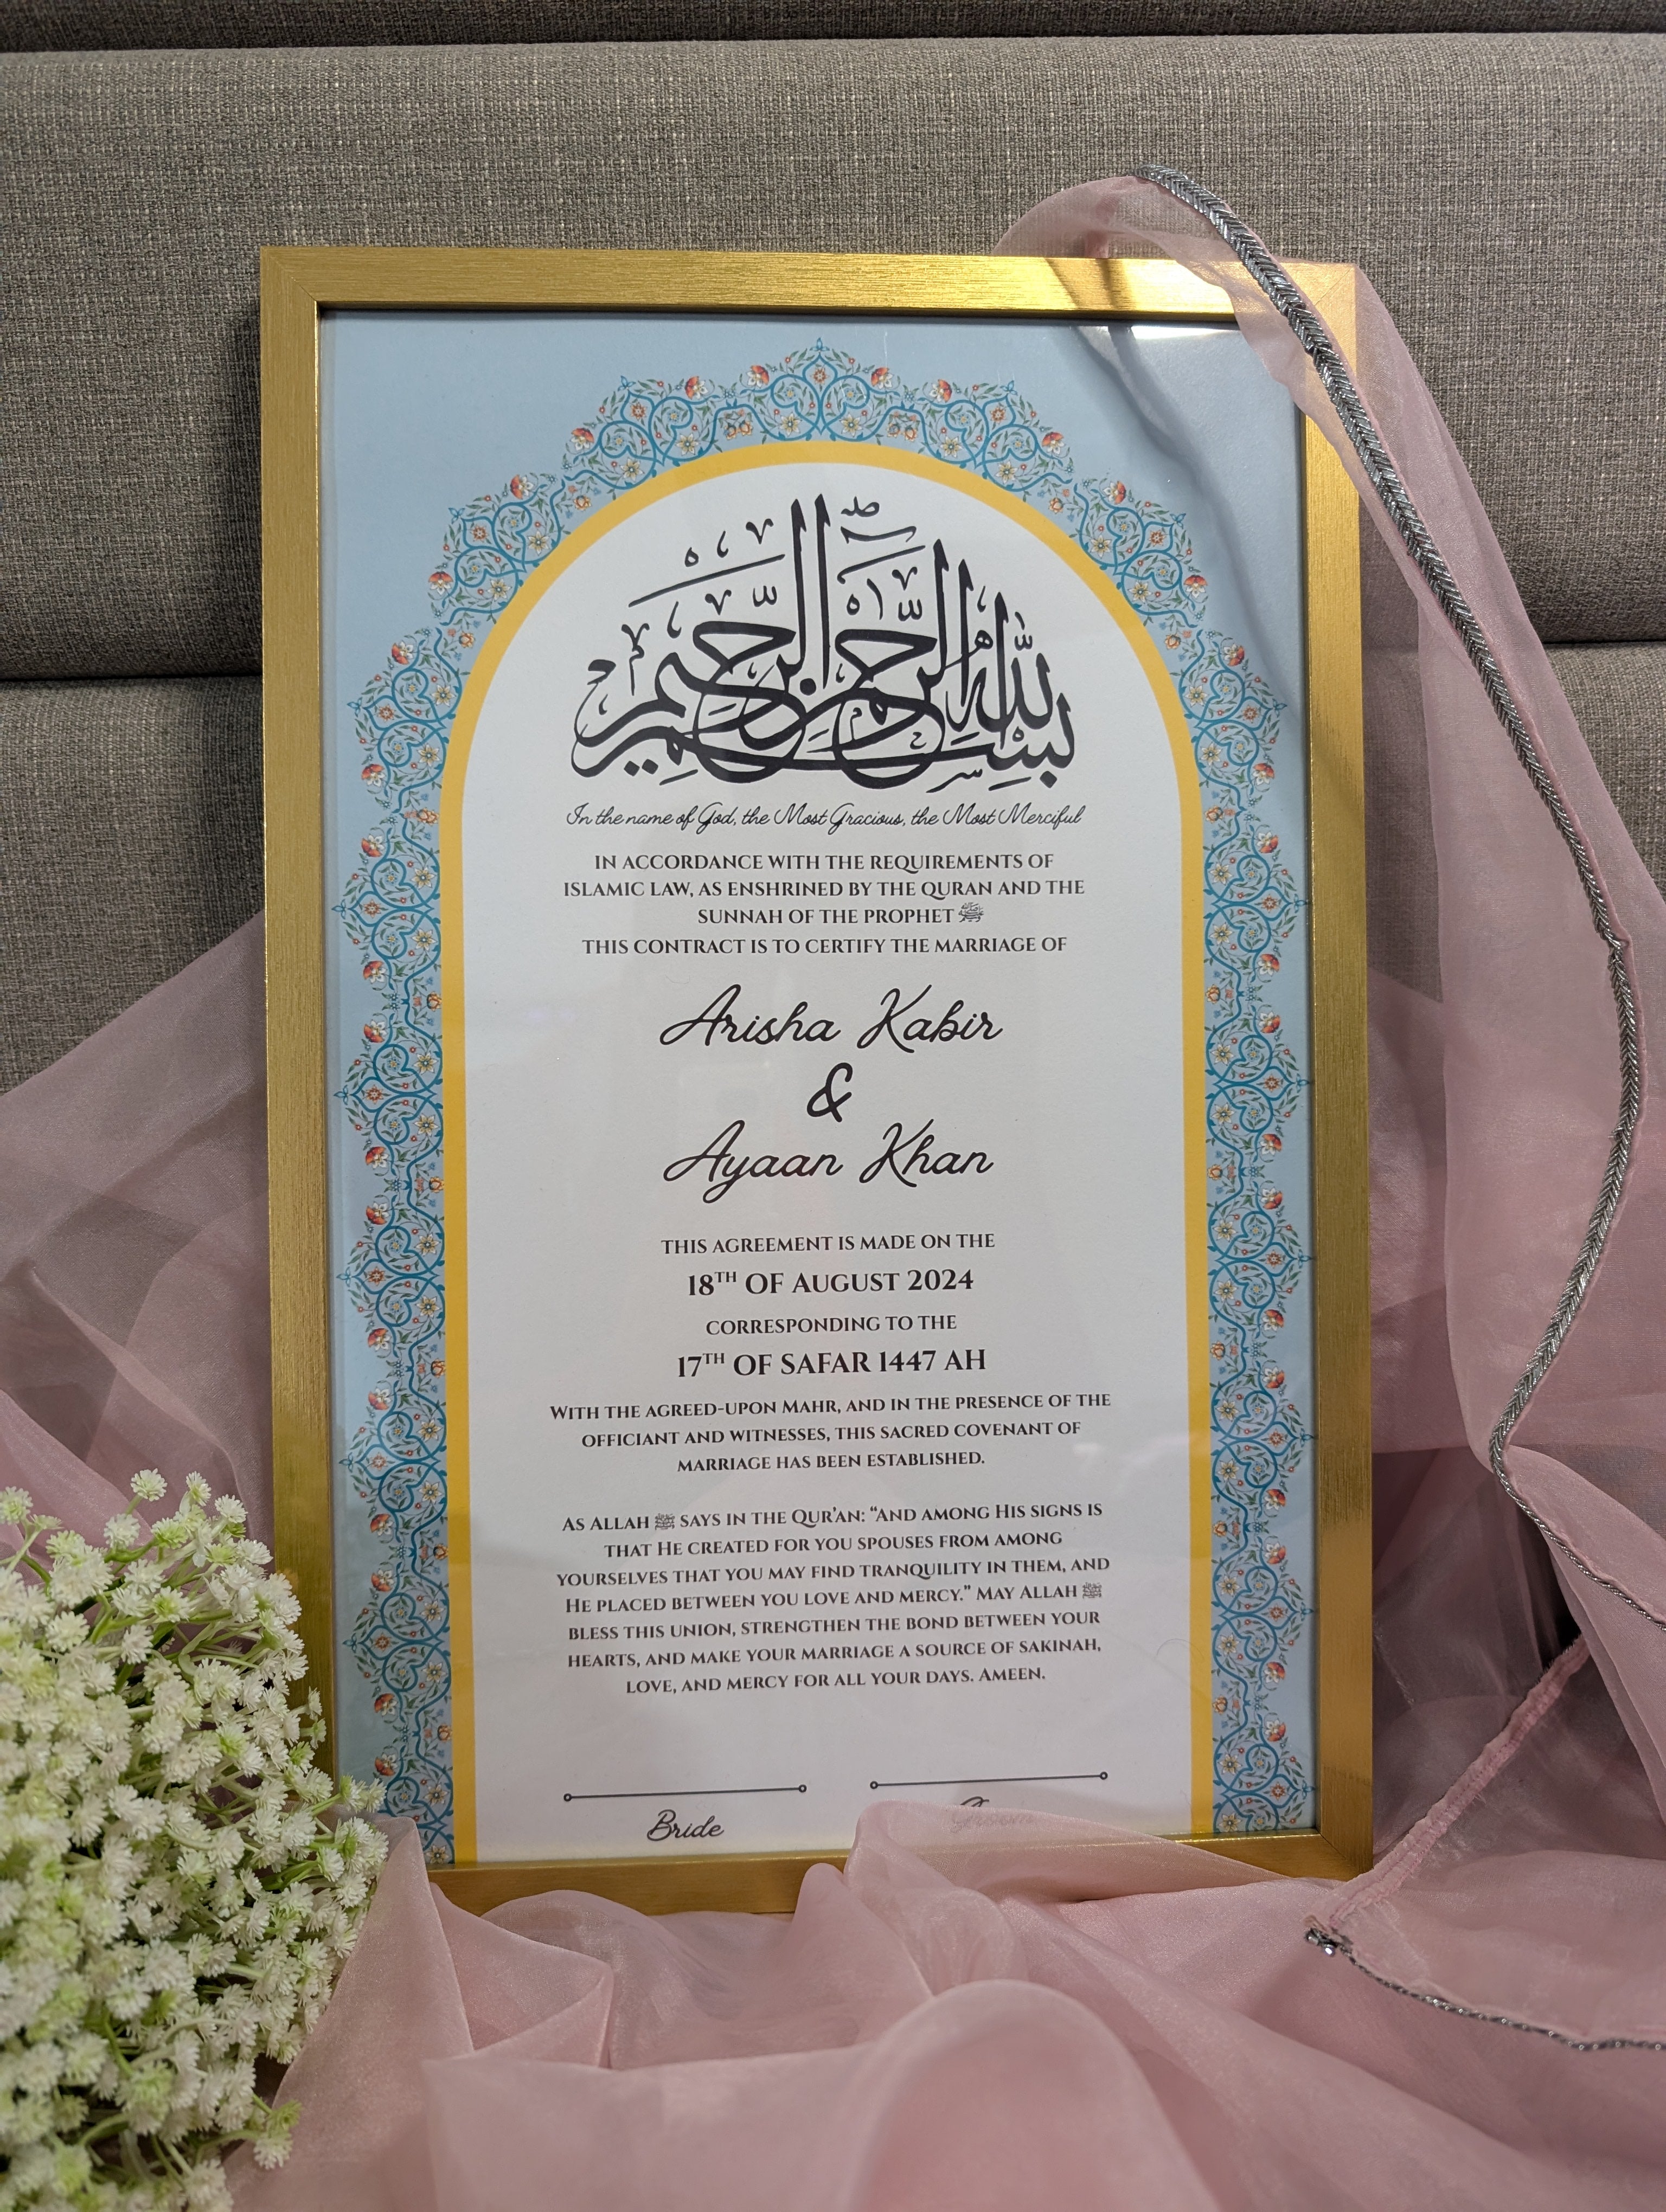 بِسْمِ اللهِ الرَّحْمٰنِ الرَّحِيْمِ
In the name of God, the Most Gracious, the Most Merciful
IN ACCORDANCE WITH THE REQUIREMENTS OF
ISLAMIC LAW, AS ENSHRINED BY THE QURAN AND THE
SUNNAH OF THE PROPHET ﷺ
THIS CONTRACT IS TO CERTIFY THE MARRIAGE OF
Arisha Kabir
&
Ayaan Khan
THIS AGREEMENT IS MADE ON THE
18TH OF AUGUST 2024
CORRESPONDING TO THE
17TH OF SAFAR 1447 AH
WITH THE AGREED-UPON MAHR, AND IN THE PRESENCE OF THE
OFFICIANT AND WITNESSES, THIS SACRED COVENANT OF
MARRIAGE HAS BEEN ESTABLISHED.
AS ALLAH ﷺ SAYS IN THE QUR’AN: “AND AMONG HIS SIGNS IS
THAT HE CREATED FOR YOU SPOUSES FROM AMONG
YOURSELVES THAT YOU MAY FIND TRANQUILITY IN THEM, AND
HE PLACED BETWEEN YOU LOVE AND MERCY.” MAY ALLAH ﷺ
BLESS THIS UNION, STRENGTHEN THE BOND BETWEEN YOUR
HEARTS, AND MAKE YOUR MARRIAGE A SOURCE OF SAKINAH,
LOVE, AND MERCY FOR ALL YOUR DAYS. AMEEN.
Bride